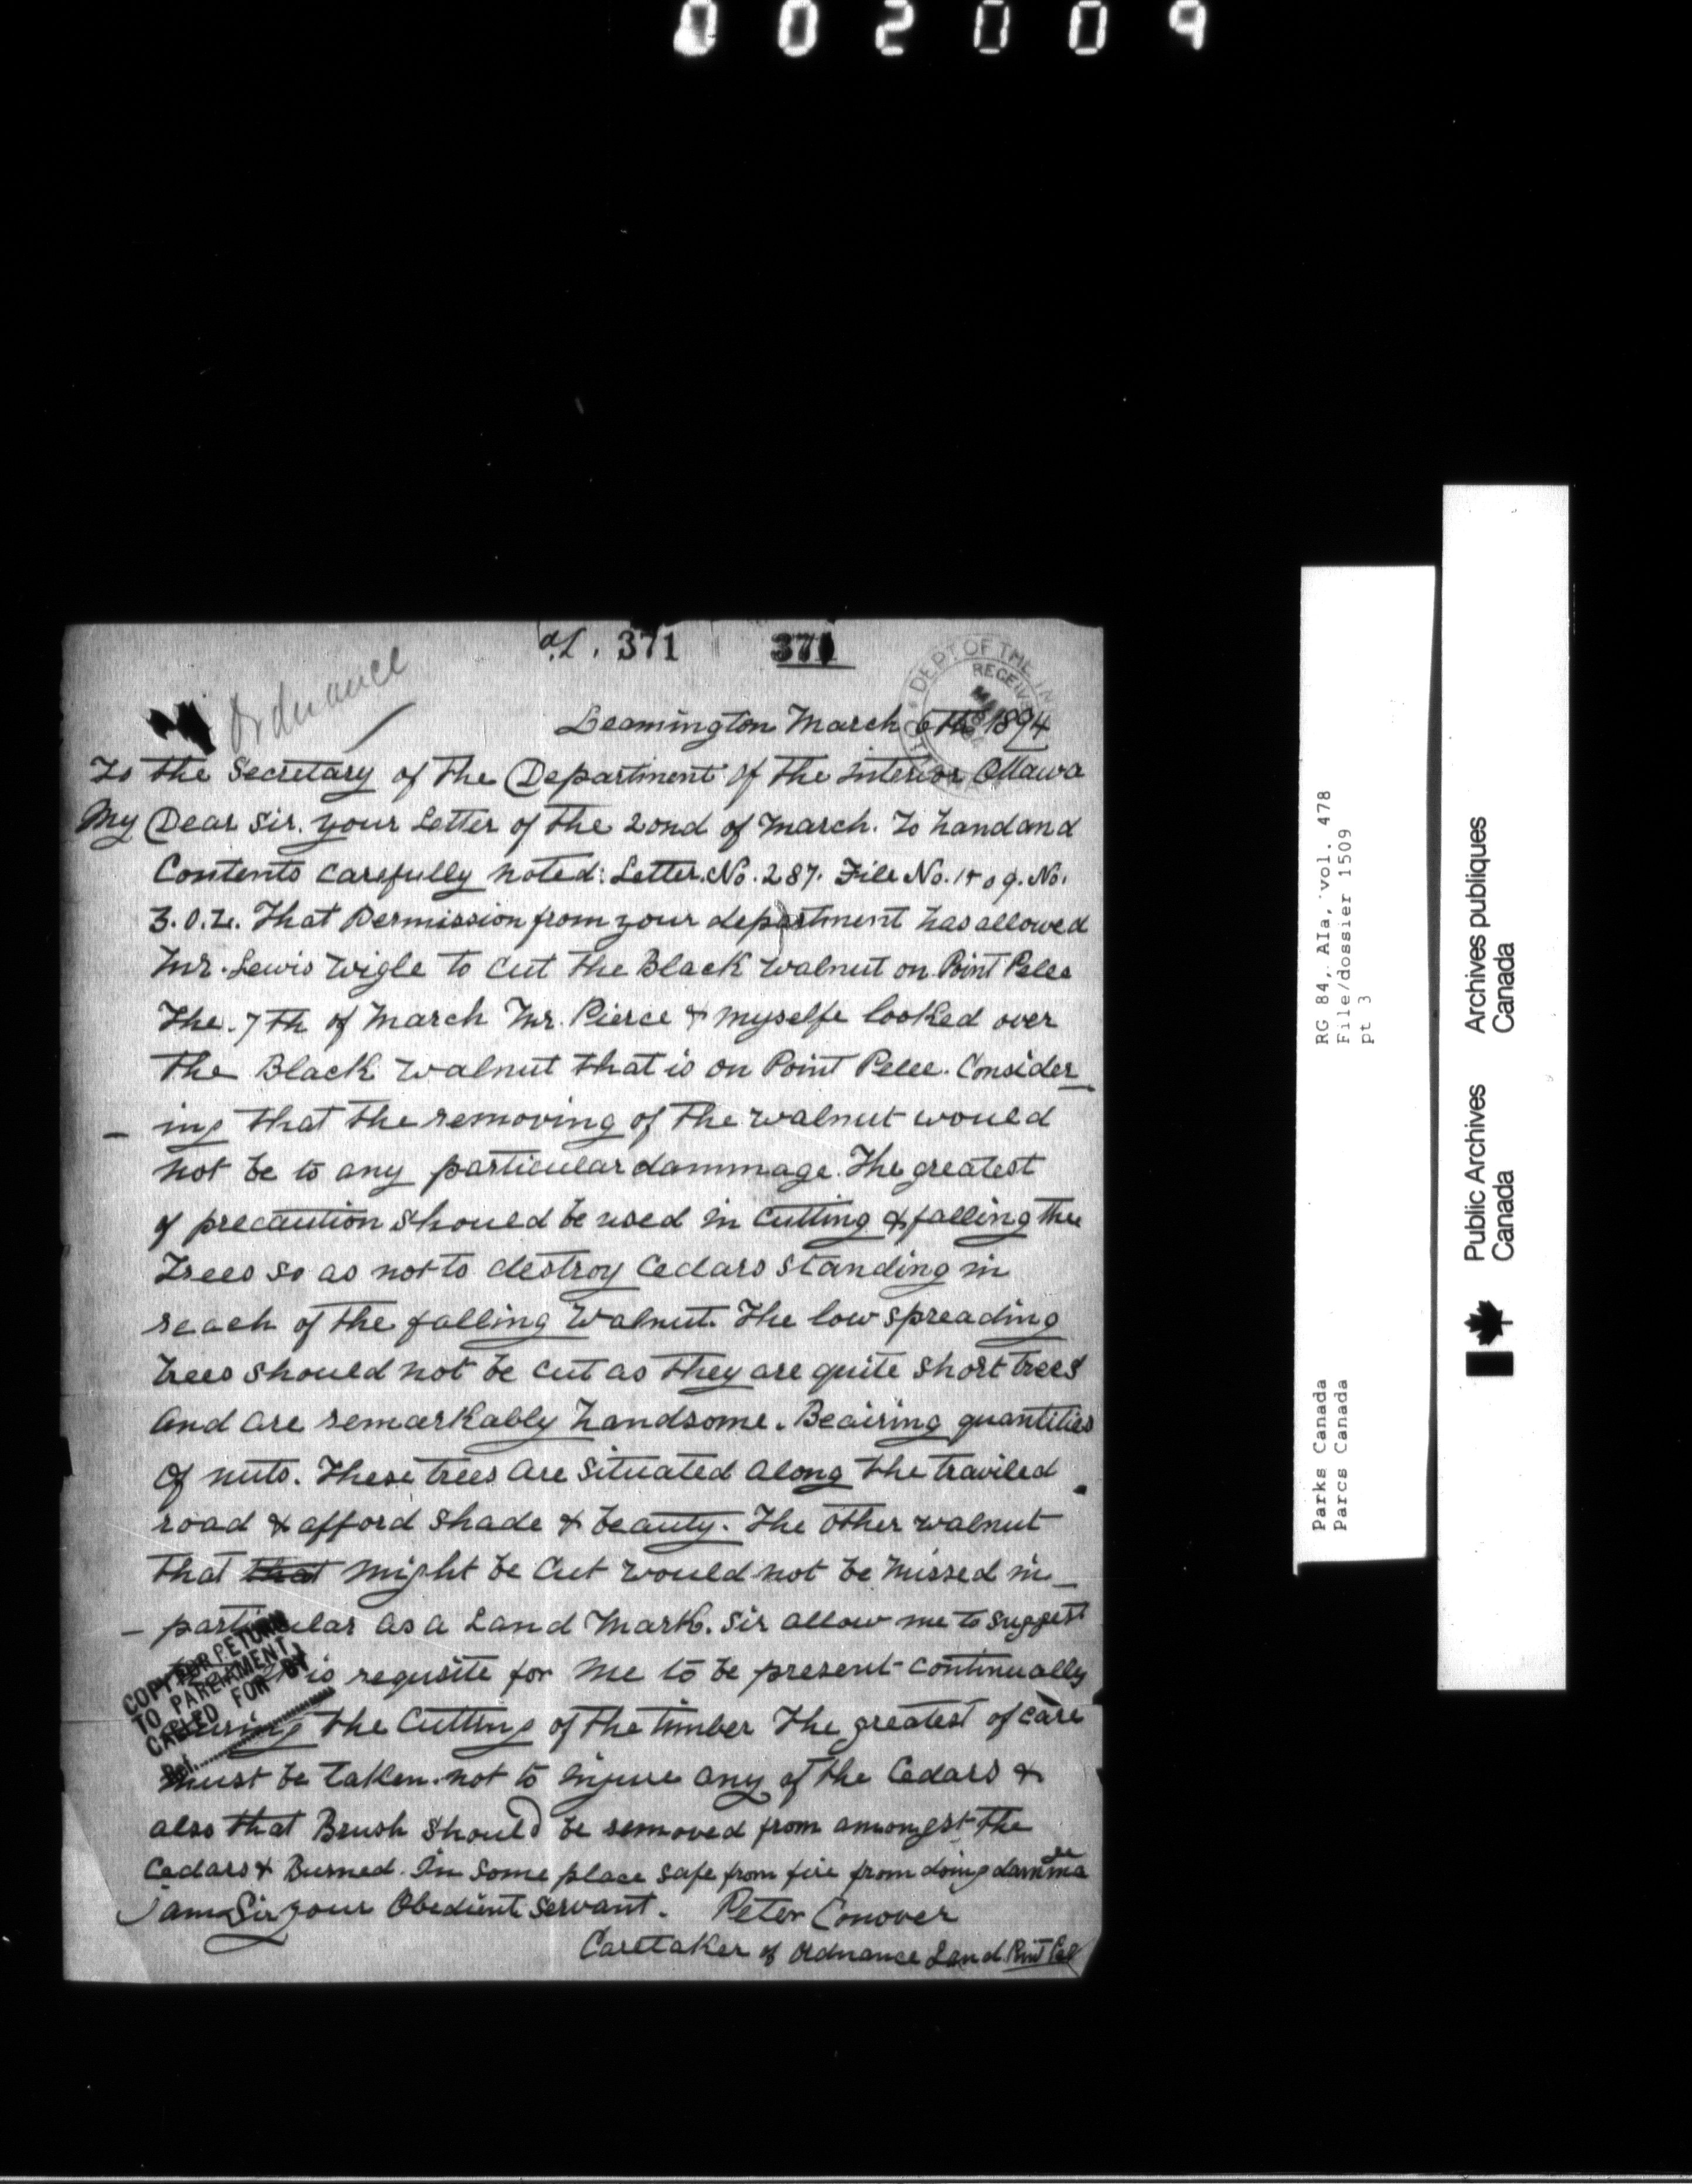 002009
O.L. 371 371
Ordnance
DEPT OF THE IN
RECEIV
Leamington March 6th 1894
To the Secretary of the Department of the interior Ottawa
My Dear Sir. your Letter of the 2ond of March. To hand and
Contents carefully noted: Letter. No. 287. File No. 1509. No.
3. O.L. That Permission from your department has allowed
Mr. Lewis Wigle to cut the Black walnut on Point Pelee
The. 7th of March Mr. Pierce & myselfe looked over
the Black walnut that is on Point Pelee. Consider_
_ ing that the removing of the walnut would
not be to any particular dammage. The greatest
of precaution should be used in cutting & falling the
Trees so as not to destroy Cedars standing in
reach of the falling walnut. The low spreading
trees should not be cut as they are quite short trees
and are remarkably handsome. Beairing quantities
of nuts. These trees are situated along the traviled
road & afford shade & beauty. The other walnut
that that might be cut would not be missed in_
_ particular as a Land Mark. Sir allow me to suggest
is requsite for me to be present continually
during the Cutting of the timber The greatest of care
must be taken. not to injure any of the Cedars &
also that Brush should be removed from amongst the
Cedars & Burned. In some place safe from fire from doing damma
ge
i am Sir your Obedient servant. Peter Conover
Caretaker of Ordnance Land Point Pel
COPY FOR RETURN
TO PARLIAMENT
CALLED FOR BY
Ref.
RG 84, A1a, vol. 478
File/dossier 1509
pt 3
Parks Canada
Parcs Canada
Public Archives
Canada
Archives publiques
Canada